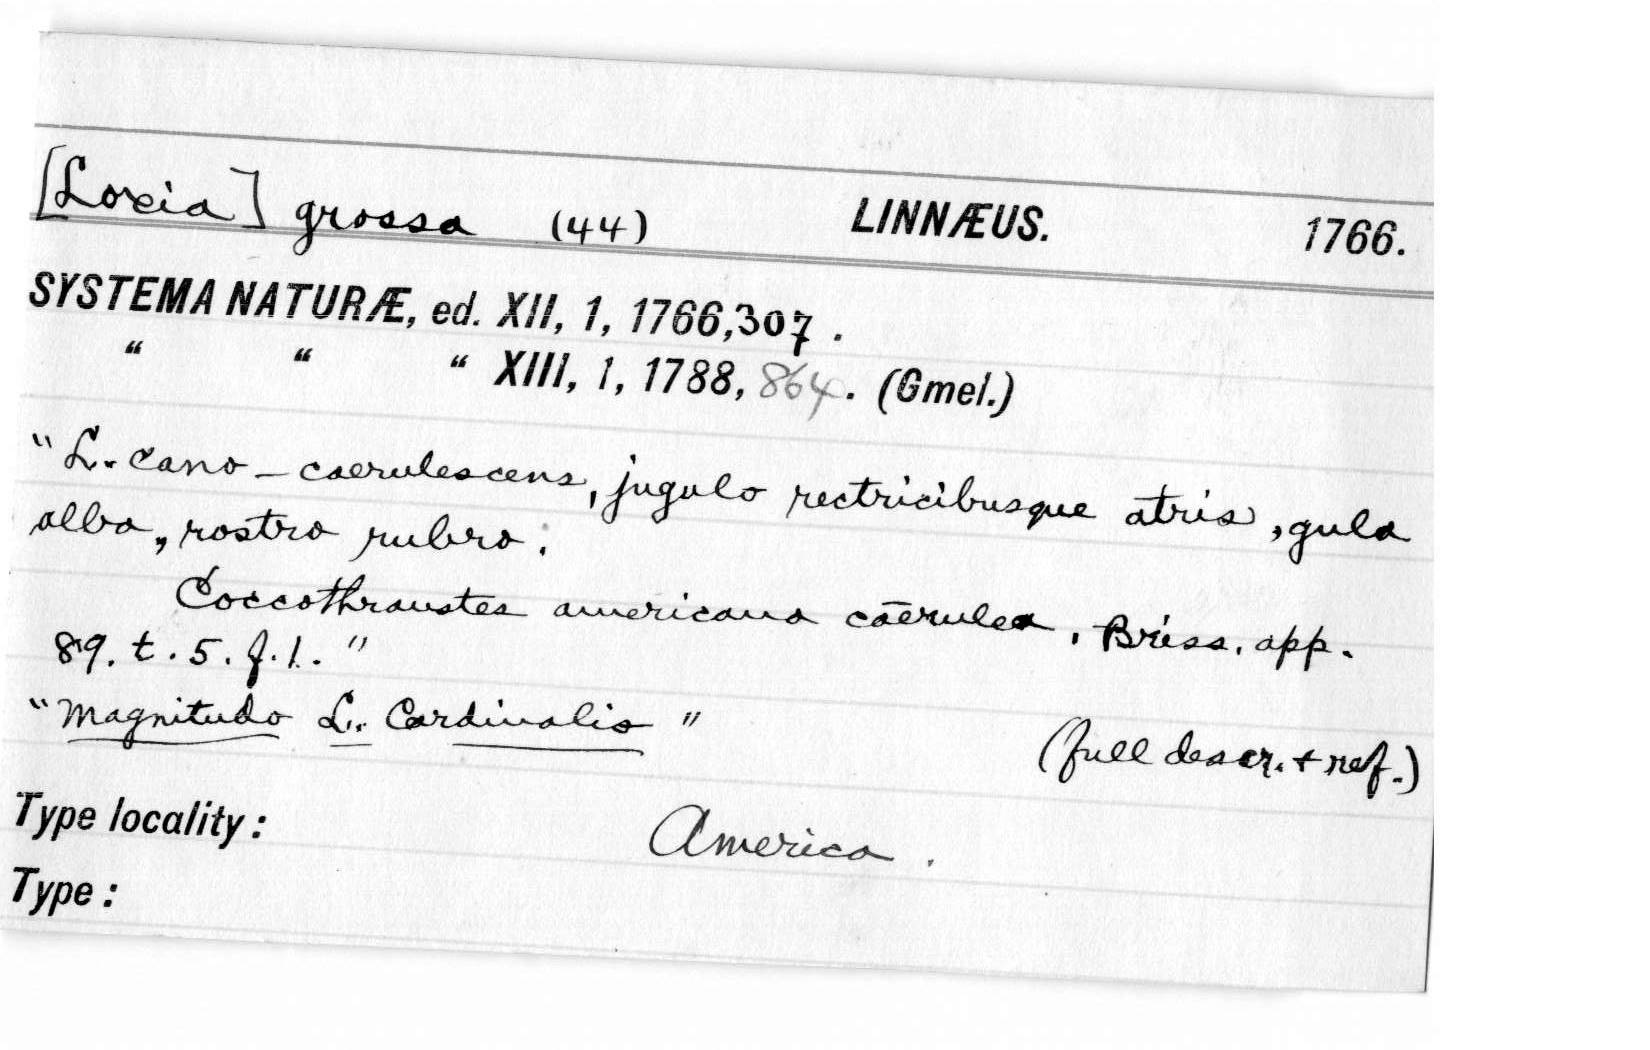 [Loxia] grossa (44) LINNÆUS. 1766.
SYSTEMA NATURÆ, ed. XII, 1, 1766, 307.
“ “ “ XIII, 1, 1788, 864. (Gmel.)
"L. cano-caerulescens, jugulo rectricibusque atris, gula
alba, rostro rubro.
Coccothraustes americana caerulea, Briss. app.
89. t. 5. f. 1."
"Magnitudo L. Cardinalis"
(full descr. + ref.)
Type locality: America.
Type: